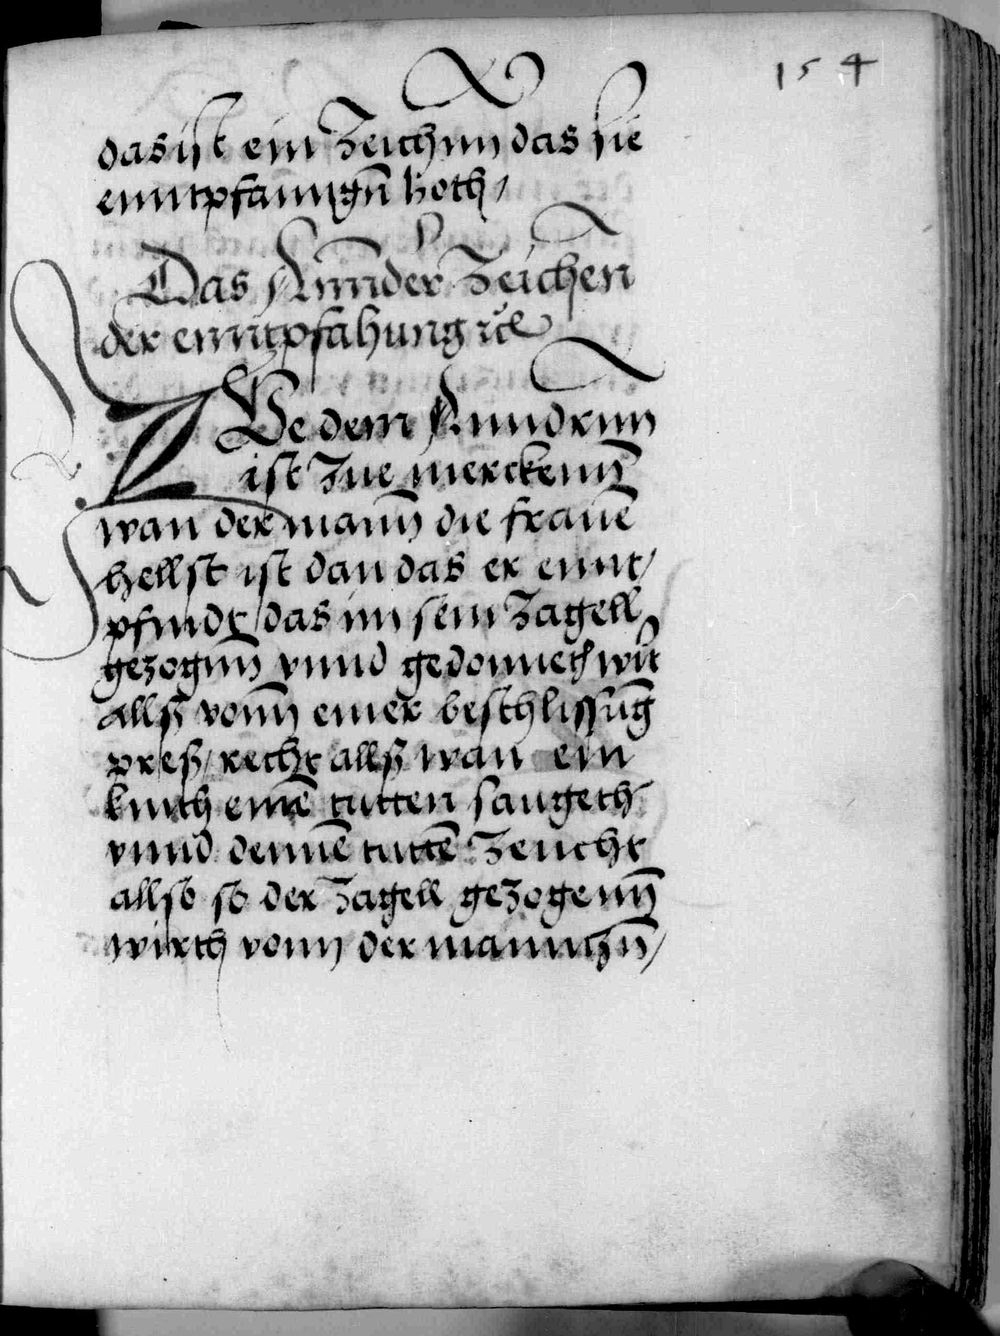 154
das ist ein Zeichnn das sie
enntpfanngn̄ hoth /
Das Annder Zeichen
der enntpfahung ꝛc̄
Zve dem Anndrnn
ist Zue merckenn̄
wan der mann̄ die frauē
hellst ist dan das er ennt /
pfindt das im sein Zagell
gezognn̄ vnnd gedonneth wirt
allß vonn̄ einer beschlissūg
preß / recht allß wan ein
kinth einē tutten saugeth
vnnd dennē tuttē Zeucht
allso so der Zagell geZogenn̄
wirth vonn der mannichn̄ /